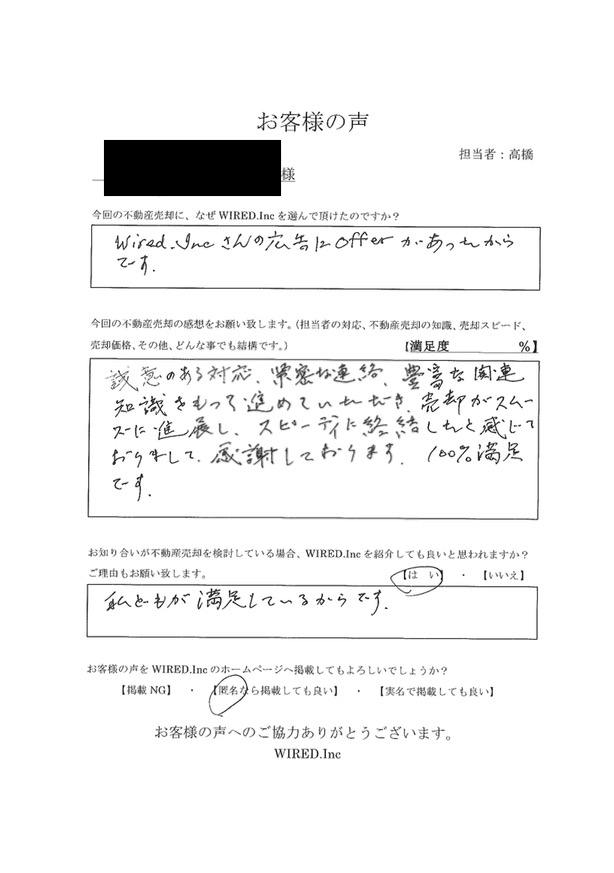 お客様の声
担当者：高橋
様
今回の不動産売却に、なぜWIRED.Incを選んで頂けたのですか？
Wired.Incさんの広告にOfferがあったから
です.
今回の不動産売却の感想をお願い致します。（担当者の対応、不動産売却の知識、売却スピード、
売却価格、その他、どんな事でも結構です。）
【満足度 %】
誠意のある対応、緊密な連絡、豊富な関連
知識をもって進めていただき、売却がスムー
ズに進展し、スピーディに終結したと感じて
おりまして、感謝しております. 100%満足
です.
お知り合いが不動産売却を検討している場合、WIRED.Incを紹介しても良いと思われますか？
ご理由もお願い致します。 【はい】 ・ 【いいえ】
私どもが満足しているからです.
お客様の声をWIRED.Incのホームページへ掲載してもよろしいでしょうか？
【掲載NG】 ・ 【匿名なら掲載しても良い】 ・ 【実名で掲載しても良い】
お客様の声へのご協力ありがとうございます。
WIRED.Inc